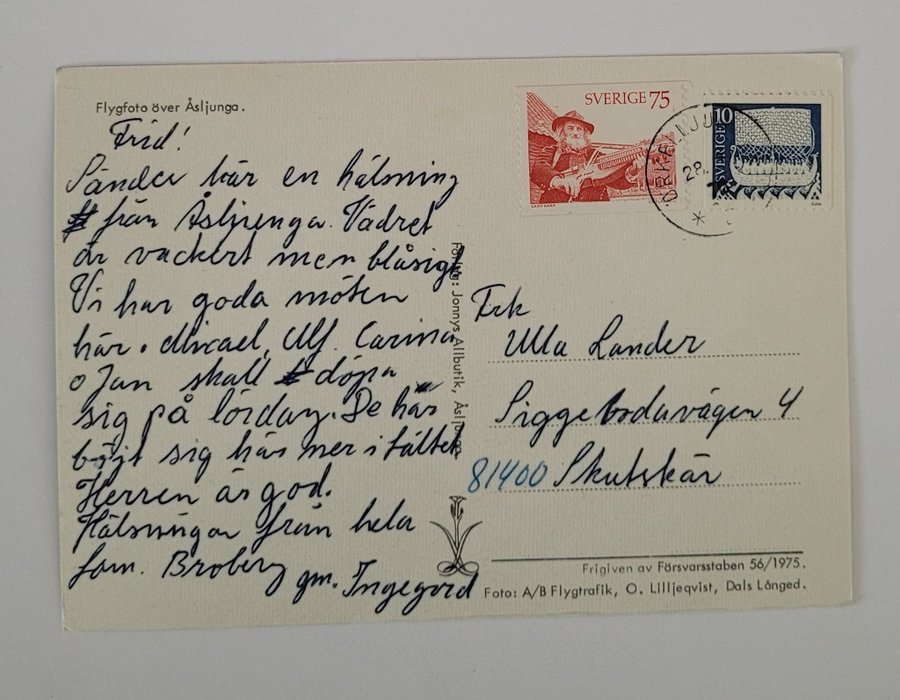 Flygfoto över Åsljunga.
Frid!
Sänder här en hälsning
från Åsljunga. Vädret
är vackert men blåsigt
Vi har goda möten
här. Micael, Ulf, Carina
o Jan skall döpa
sig på lördag. De har
böjt sig här mer i tältet
Herren är god.
Hälsningar från hela
fam. Broberg gm. Ingegerd
Förlag: Jonnys Allbutik, Åsljunga
SVERIGE 75
SVERIGE 10
28.
Frk
Ulla Lander
Siggebodavägen 4
81400 Skutskär
Frigiven av Försvarsstaben 56/1975.
Foto: A/B Flygtrafik, O. Lilljeqvist, Dals Långed.